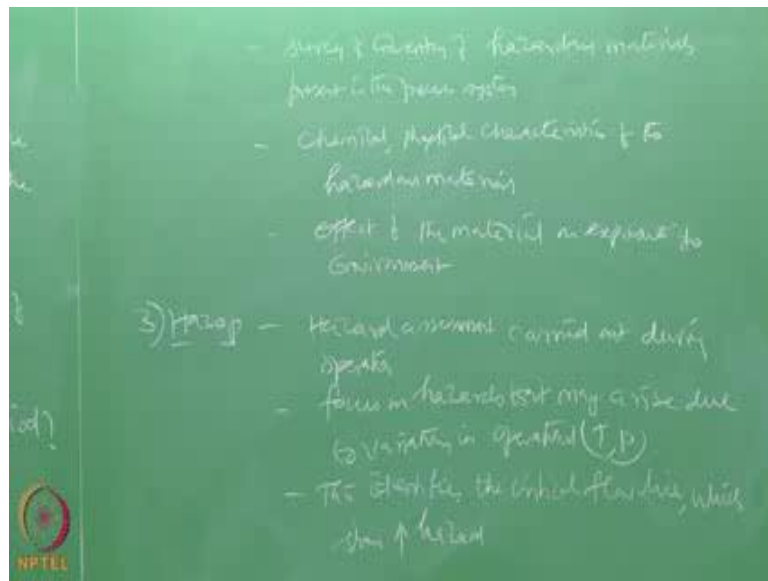 - survey & inventory of hazardous materials
present in the process system
- Chemical, physical characteristics of
hazardous materials
- effect of the material on exposure to
Environment
3) Hazop - Hazard assessment carried out during
operation
- focus on hazards that may arise due
to variation in operational (T, P)
- identifies the critical flow line, which
↑ hazard
iod?
NPTEL